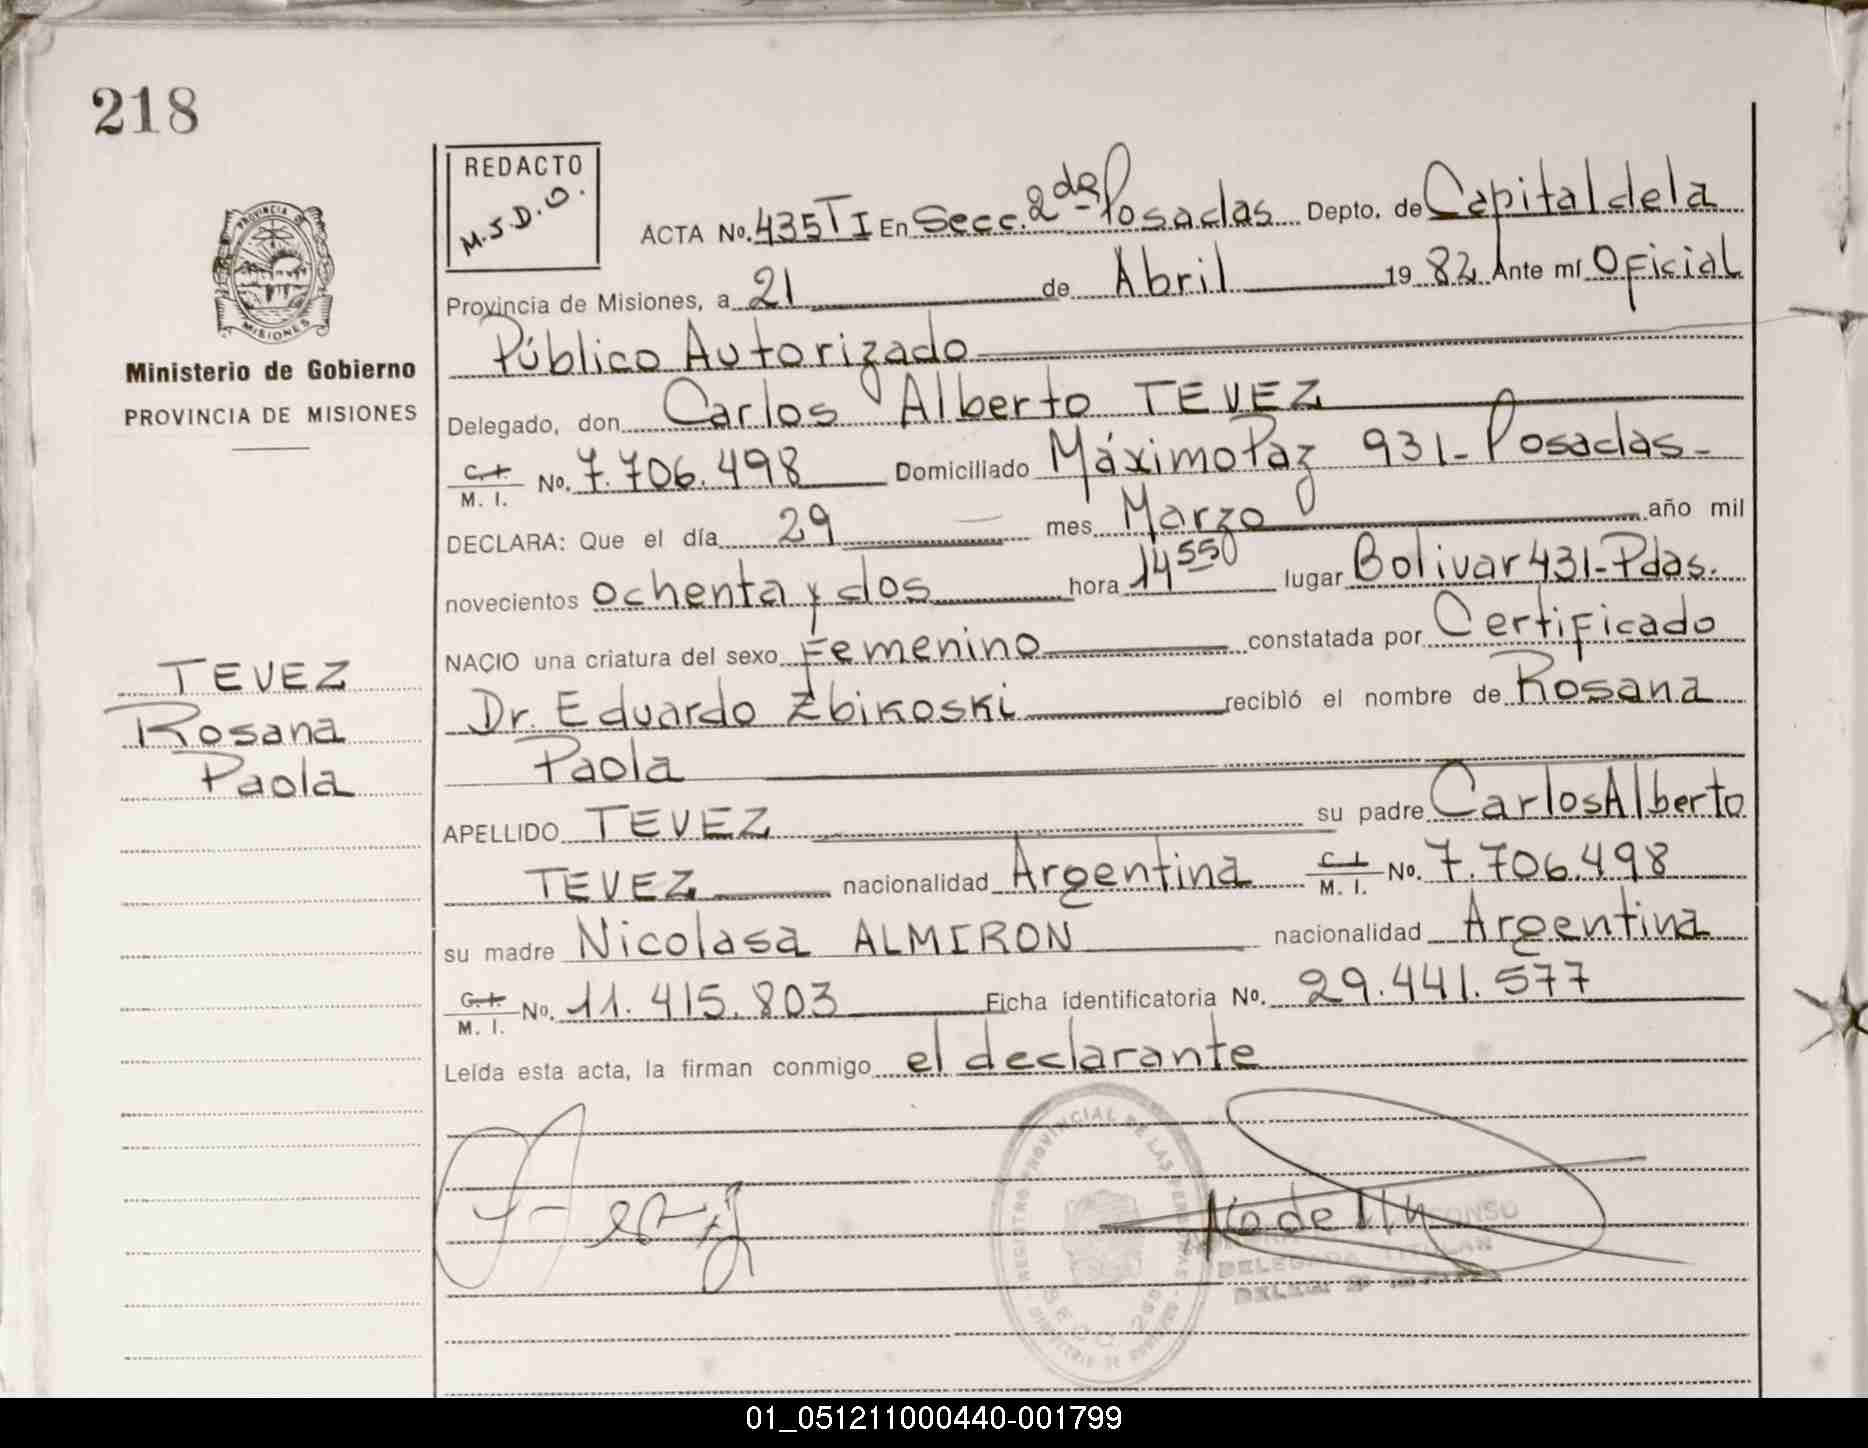 218
REDACTO
M.S.D.O.
PROVINCIA DE
MISIONES
Ministerio de Gobierno
PROVINCIA DE MISIONES
ACTA No. 435 TI En Secc. 2da Posadas Depto. de Capital de la
Provincia de Misiones, a 21 de Abril 19 82 Ante mí Oficial
Público Autorizado
Delegado, don Carlos Alberto TEVEZ
C. I. / M. I. No. 7.706.498 Domiciliado Máximo Paz 931-Posadas-
DECLARA: Que el día 29 mes Marzo año mil
novecientos ochenta y dos hora 14 55 lugar Bolivar 431-Pdas.
NACIO una criatura del sexo Femenino constatada por Certificado
Dr. Eduardo Zbikoski recibió el nombre de Rosana
Paola
APELLIDO TEVEZ su padre Carlos Alberto
TEVEZ nacionalidad Argentina C. I. / M. I. No. 7.706.498
su madre Nicolasa ALMIRON nacionalidad Argentina
C. I. / M. I. No. 11.415.803 Ficha identificatoria No. 29.441.577
Leída esta acta, la firman conmigo el declarante
TEVEZ
Rosana
Paola
REGISTRO PROVINCIAL DE LAS
DELEGADA TITULAR
01_051211000440-001799